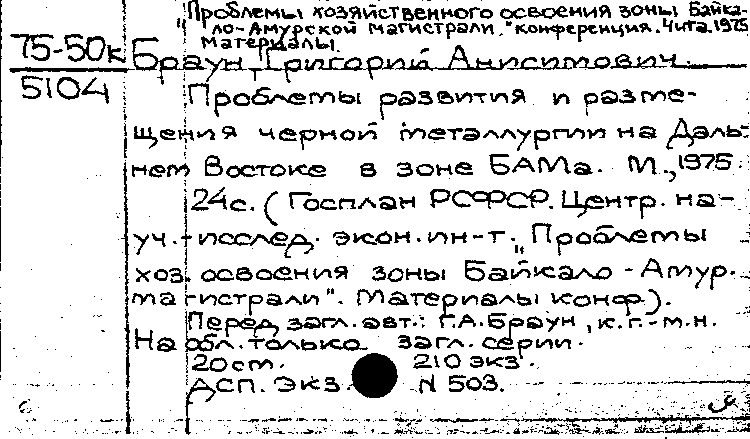 "Проблемы хозяйственного освоения зоны Байка-
ло-Амурской магистрали," конференция. Чита. 1975
материалы.
75-50к
5104
Браун, Григорий Анисимович.
Проблемы развития и разме-
щения черной металлургии на Даль-
нем Востоке в зоне БАМа. М., 1975.
24с. (Госплан РСФСР. Центр. на-
уч.-исслед. экон. ин-т. "Проблемы
хоз. освоения зоны Байкало-Амур.
магистрали". Материалы конф.).
Перед загл. авт.: Г.А. Браун, к.г.-м.н.
На обл. только загл. серии.
20 см. 210 экз.
ДСП. Экз. N 503.